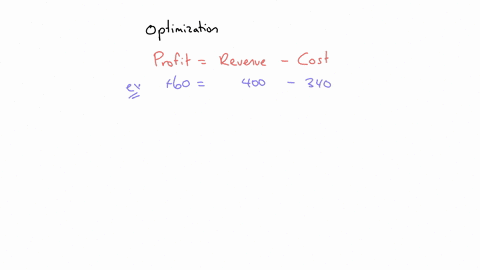 Optimization
Profit = Revenue - Cost
ex +60 = 400 - 340